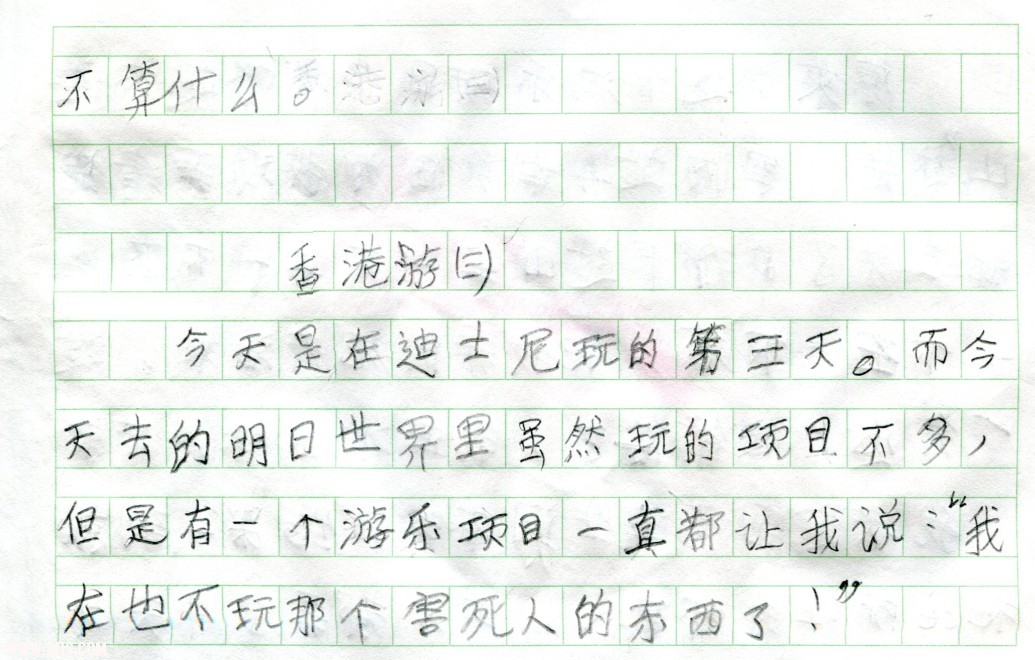 不算什么。香港游(三)
香港游(三)
今天是在迪士尼玩的第三天。而今
天去的明日世界里虽然玩的项目不多,
但是有一个游乐项目一真都让我说:“我
在也不玩那个害死人的东西了!”